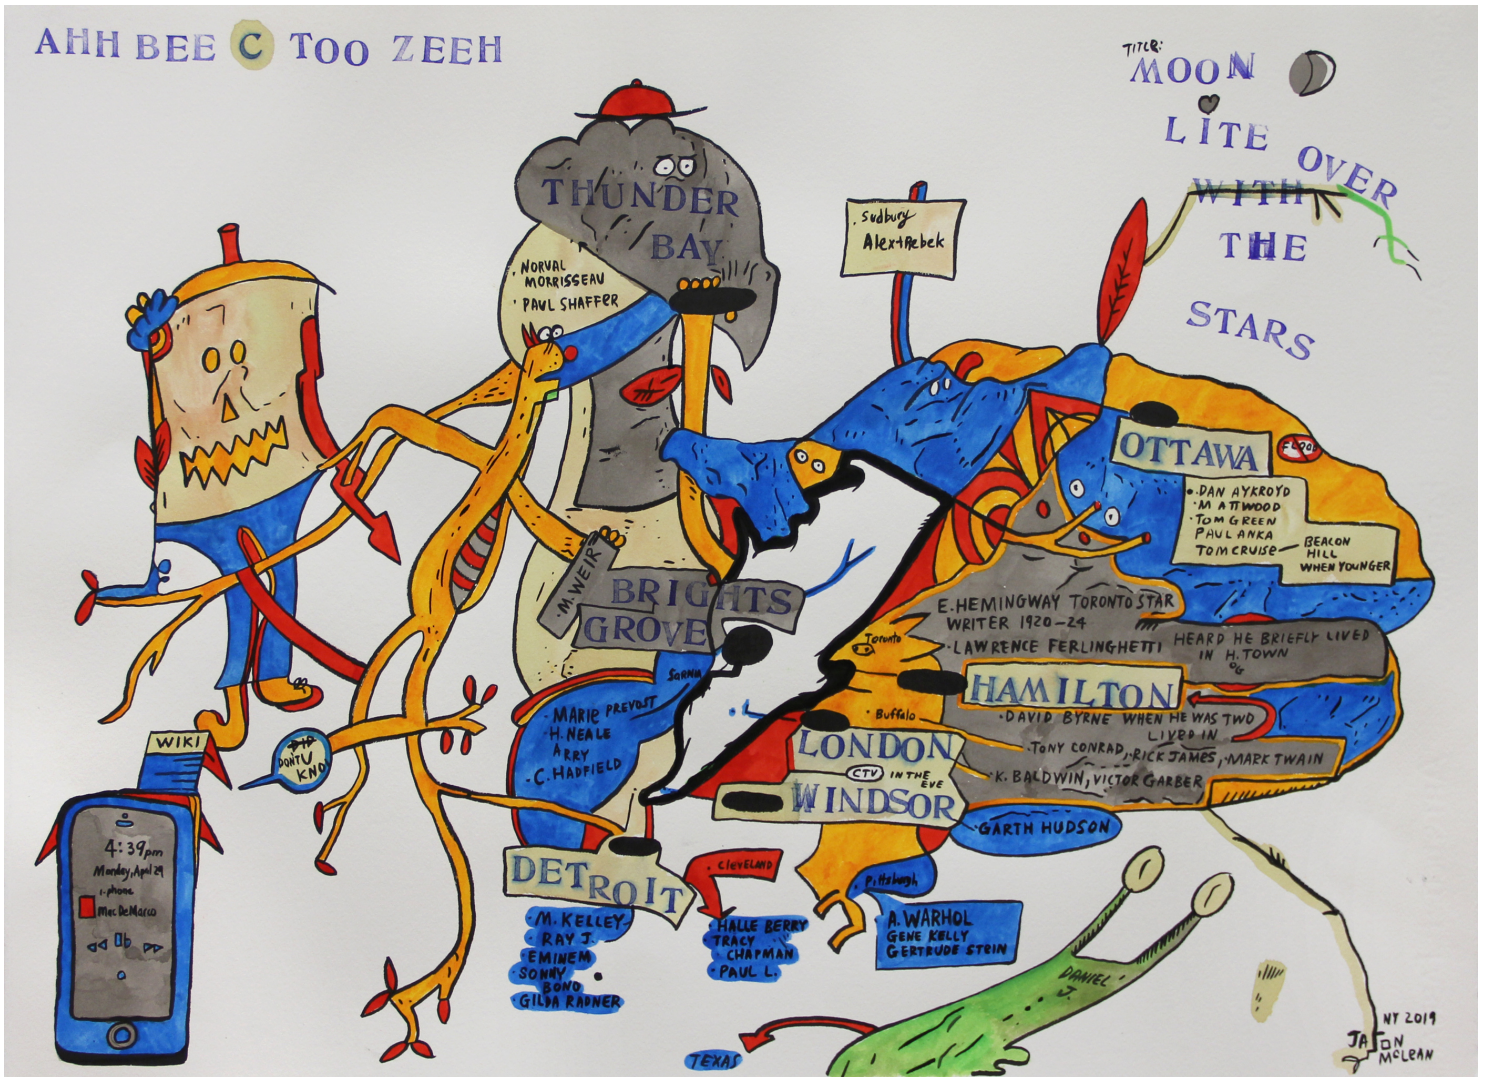 AHH BEE C TOO ZEEH
TITLE:
MOON
LITE OVER
WITH
THE
STARS
THUNDER
BAY
· NORVAL
MORRISSEAU
· PAUL SHAFFER
· Sudbury
Alex trebek
OTTAWA
FLOOD
· DAN AYKROYD
· M ATTWOOD
· TOM GREEN
PAUL ANKA
TOM CRUISE
BEACON
HILL
WHEN YOUNGER
· M. WEIR
BRIGHTS
GROVE
E. HEMINGWAY TORONTO STAR
WRITER 1920-24
· LAWRENCE FERLINGHETTI
HEARD HE BRIEFLY LIVED
IN H. TOWN
OG
Toronto
HAMILTON
Sarnia
· MARIE PREVOST
· H. NEALE
ARRY
· C. HADFIELD
· Buffalo
· DAVID BYRNE WHEN HE WAS TWO
LIVED IN
· TONY CONRAD, RICK JAMES, · MARK TWAIN
· K. BALDWIN, VICTOR GARBER
LONDON
CTV IN THE
EVE
WINDSOR
· GARTH HUDSON
WIKI
DID
DONT U
KNO
4:39pm
Monday, April 29
i-phone
Mac DeMarco
DETROIT
· M. KELLEY
· RAY J.
· EMINEM
· SONNY
BONO
· GILDA RADNER
· CLEVELAND
· HALLE BERRY
TRACY
CHAPMAN
· PAUL L.
· Pittsburgh
A. WARHOL
GENE KELLY
GERTRUDE STEIN
DANIEL
J.
TEXAS
NY 2019
JASON
MCLEAN